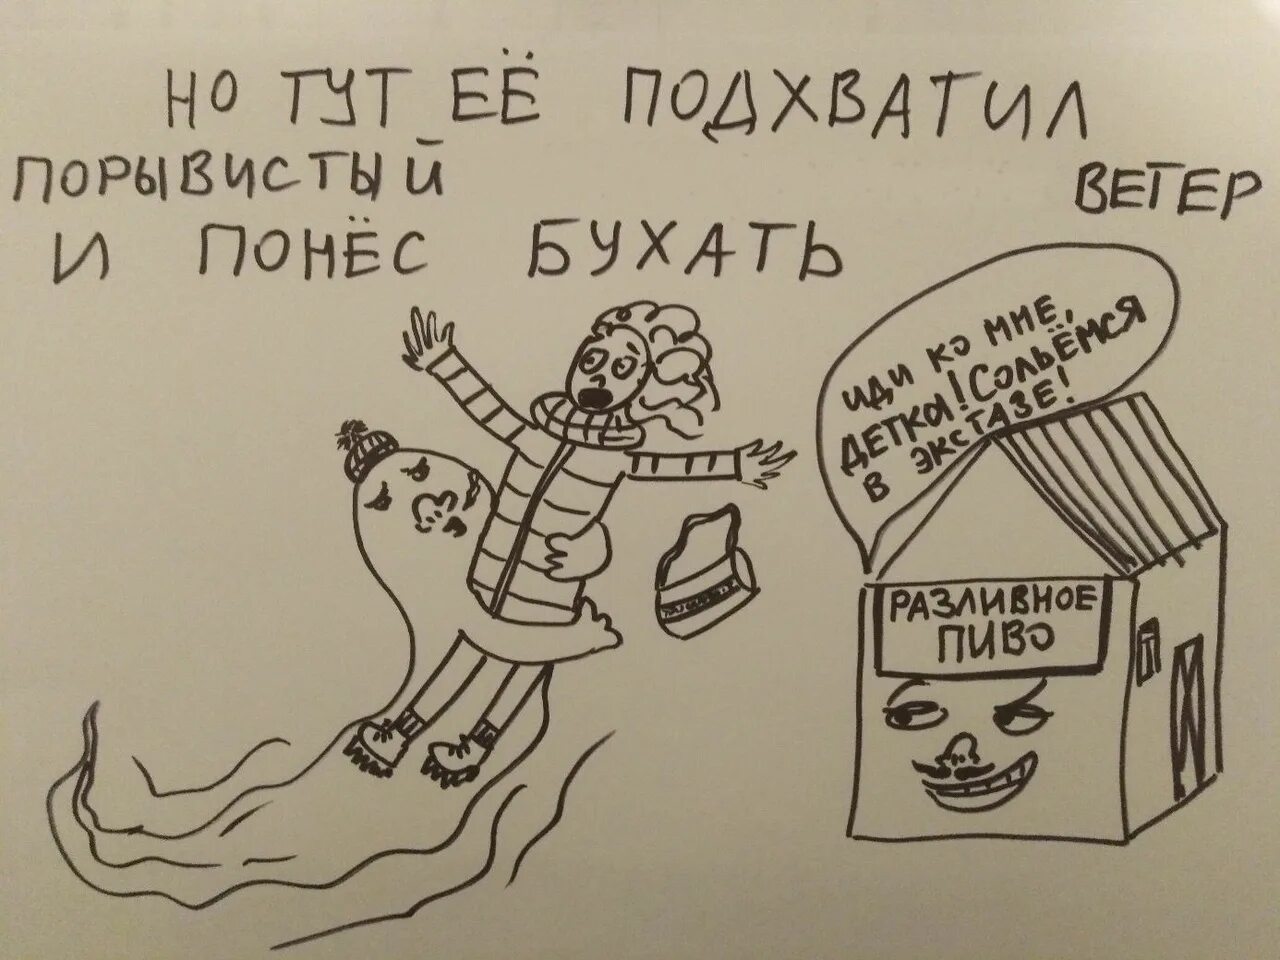 НО ТУТ ЕЁ ПОДХВАТИЛ
ПОРЫВИСТЫЙ ВЕТЕР
И ПОНЁС БУХАТЬ
ИДИ КО МНЕ,
ДЕТКА! СОЛЬЁМСЯ
В ЭКСТАЗЕ!
РАЗЛИВНОЕ
ПИВО